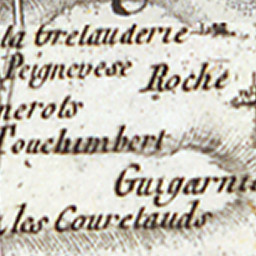 la Grelauderie
Peignevese
Roché
nerots
Touchimbert
Guigarni
les Couretauds